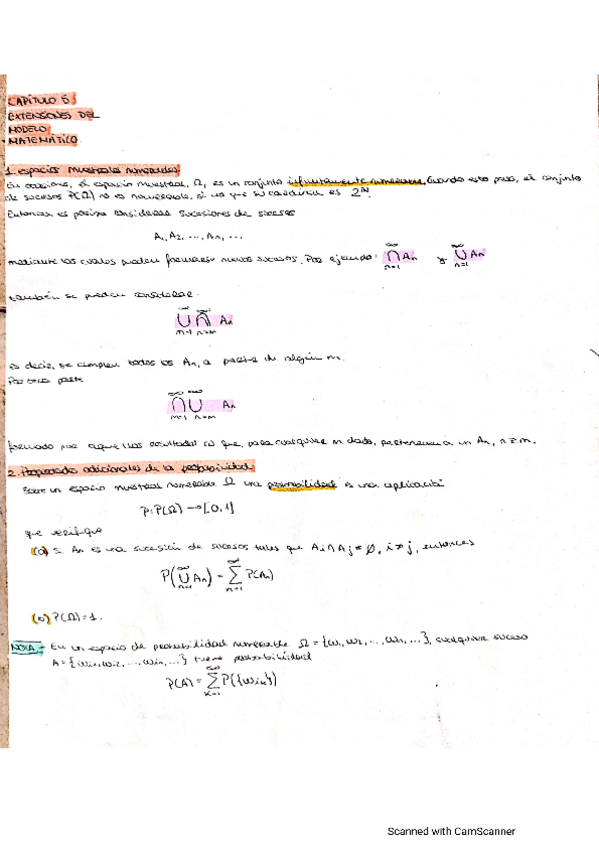 CAPÍTULO 5:
EXTENSIONES DEL
MODELO
MATEMÁTICO.
1. espacios muestrales numerables
En ocasiones, el espacio muestral, Ω, es un conjunto infinitamente numerable. Cuando esto pasa, el conjunto
de sucesos P(Ω) no es numerable, si no que su cardinal es 2^ℕ.
Entonces es posible considerar sucesiones de sucesos
A₁, A₂, ..., Aₙ, ...
mediante los cuales pueden formarse nuevos sucesos. Por ejemplo: ⋂_{n=1}^∞ Aₙ y ⋃_{n=1}^∞ Aₙ
también se pueden considerar.
⋃_{m=1}^∞ ⋂_{n=m}^∞ Aₙ
es decir, se cumplen todos los Aₙ, a partir de algún m.
Por otra parte
⋂_{m=1}^∞ ⋃_{n=m}^∞ Aₙ
formado por aquellos resultados ω que, para cualquier m dado, pertenecen a un Aₙ, n≥m.
2. Propiedades adicionales de la probabilidad
Sobre un espacio muestral numerable Ω una probabilidad es una aplicación
P: P(Ω) → [0,1]
que verifique
(a) Si Aₙ es una sucesión de sucesos tales que Aᵢ∩Aⱼ = ∅, i≠j, entonces
P(⋃_{n=1}^∞ Aₙ) = ∑_{n=1}^∞ P(Aₙ)
(b) P(Ω)=1.
NOTA.- En un espacio de probabilidad numerable Ω = {ω₁, ω₂, ..., ωₙ, ...}, cualquier suceso
A = {ωᵢ₁, ωᵢ₂, ..., ωᵢₙ, ...} tiene probabilidad
P(A) = ∑_{k=1}^∞ P({ωᵢₖ})
Scanned with CamScanner